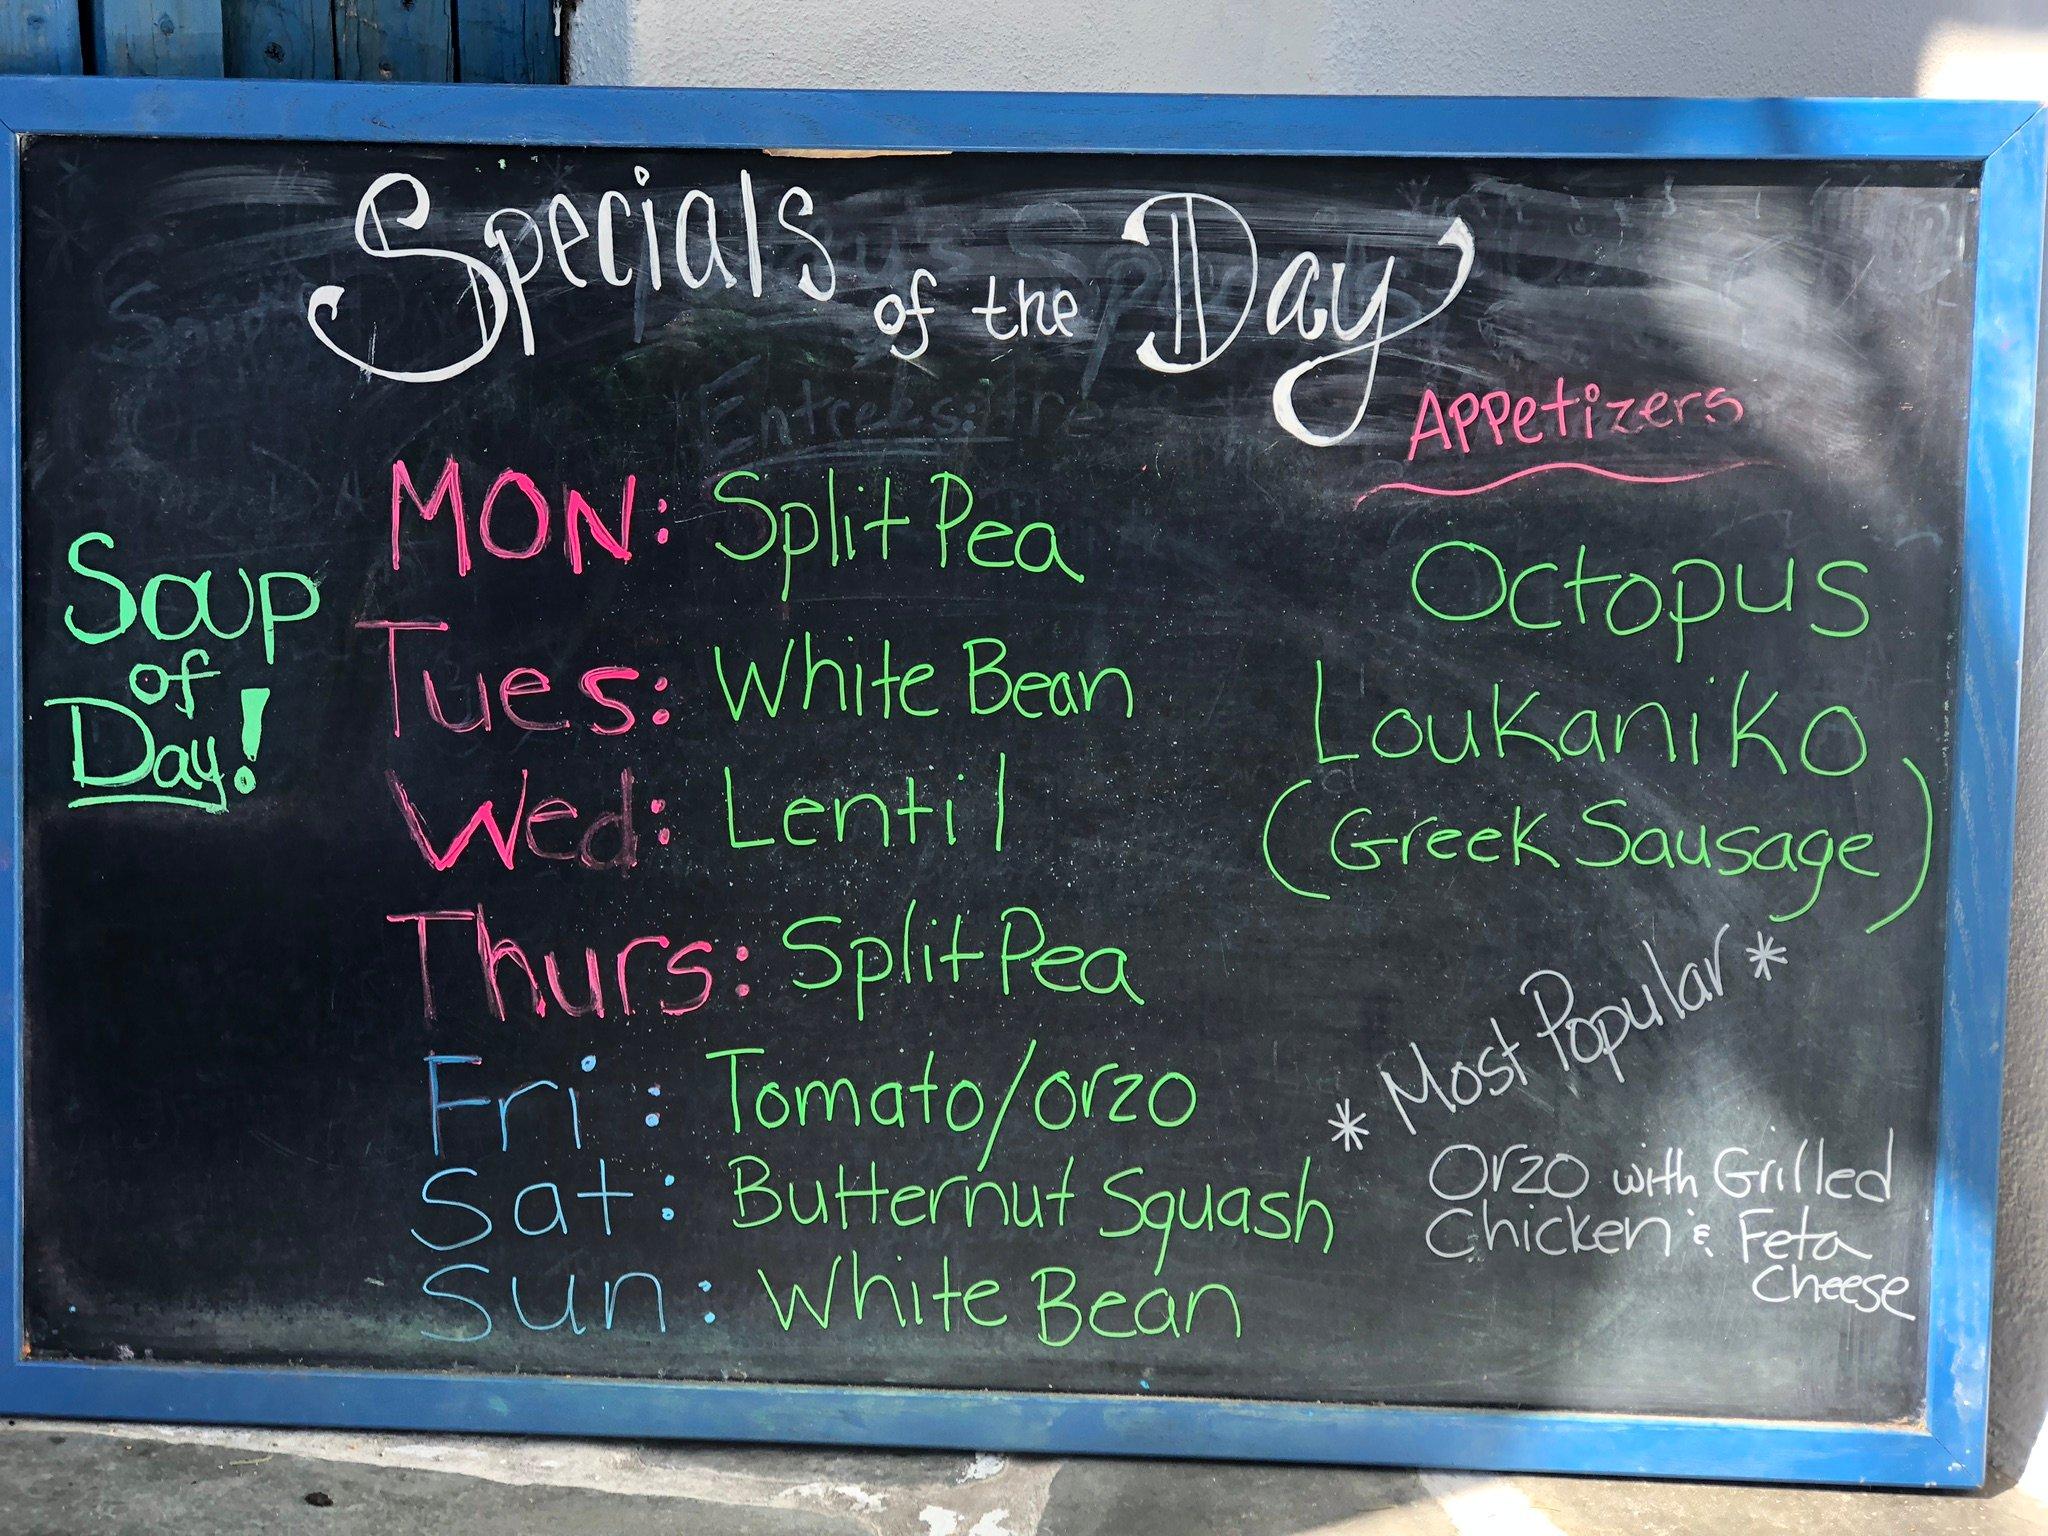 Specials of the Day
Soup
of
Day!
MON: Split Pea
Tues: White Bean
Wed: Lentil
Thurs: Split Pea
Fri: Tomato/orzo
Sat: Butternut Squash
Sun: White Bean
Appetizers
Octopus
Loukaniko
(Greek Sausage)
* Most Popular *
Orzo with Grilled
Chicken & Feta
Cheese